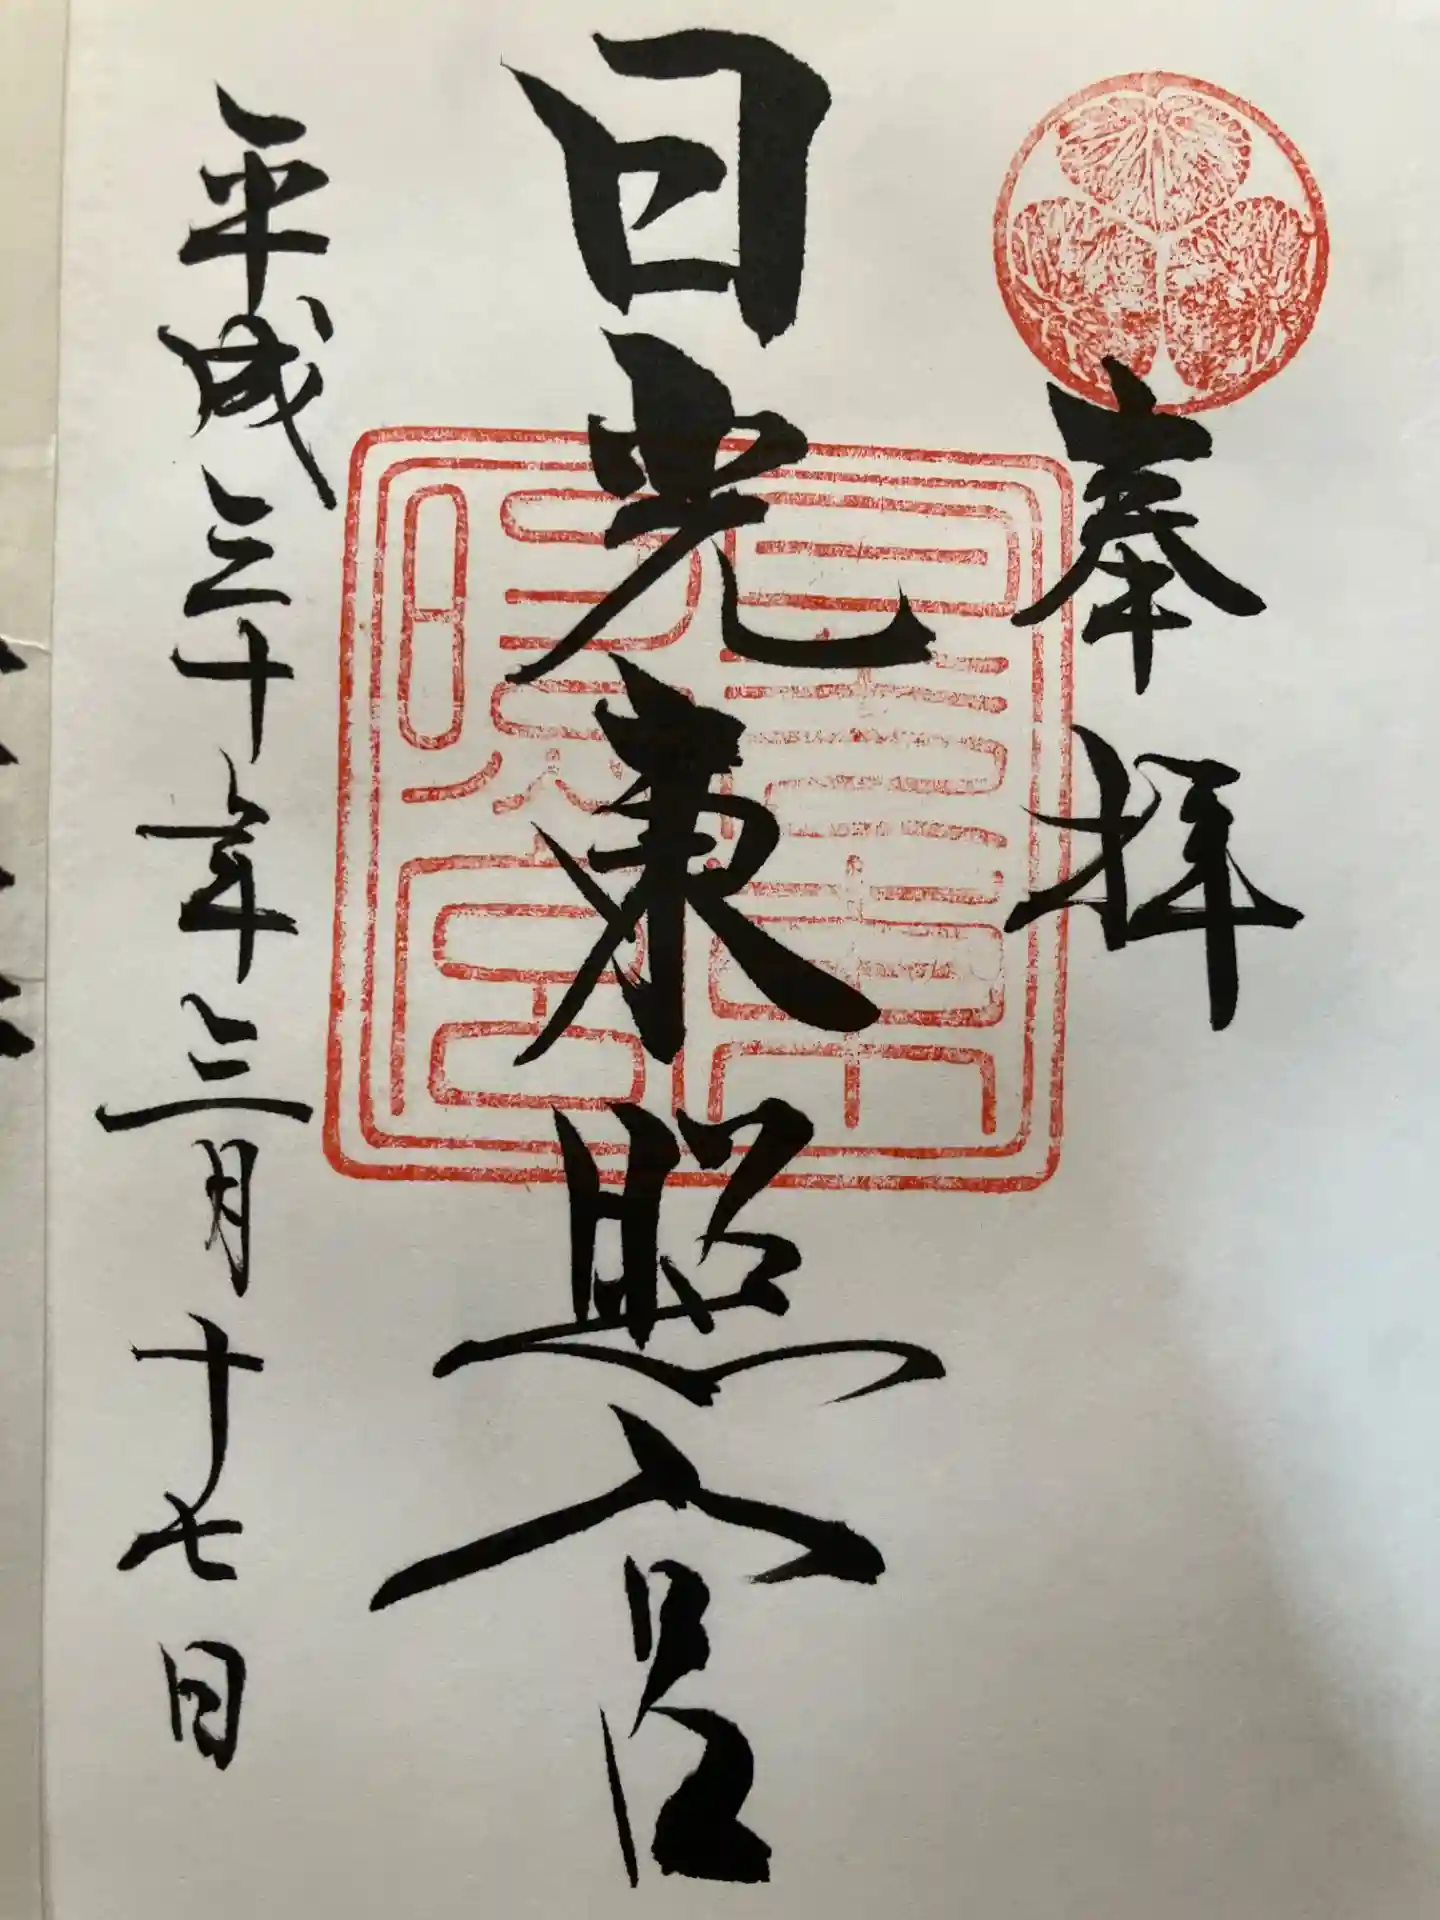 奉拝
日光東照宮
平成三十年三月十七日